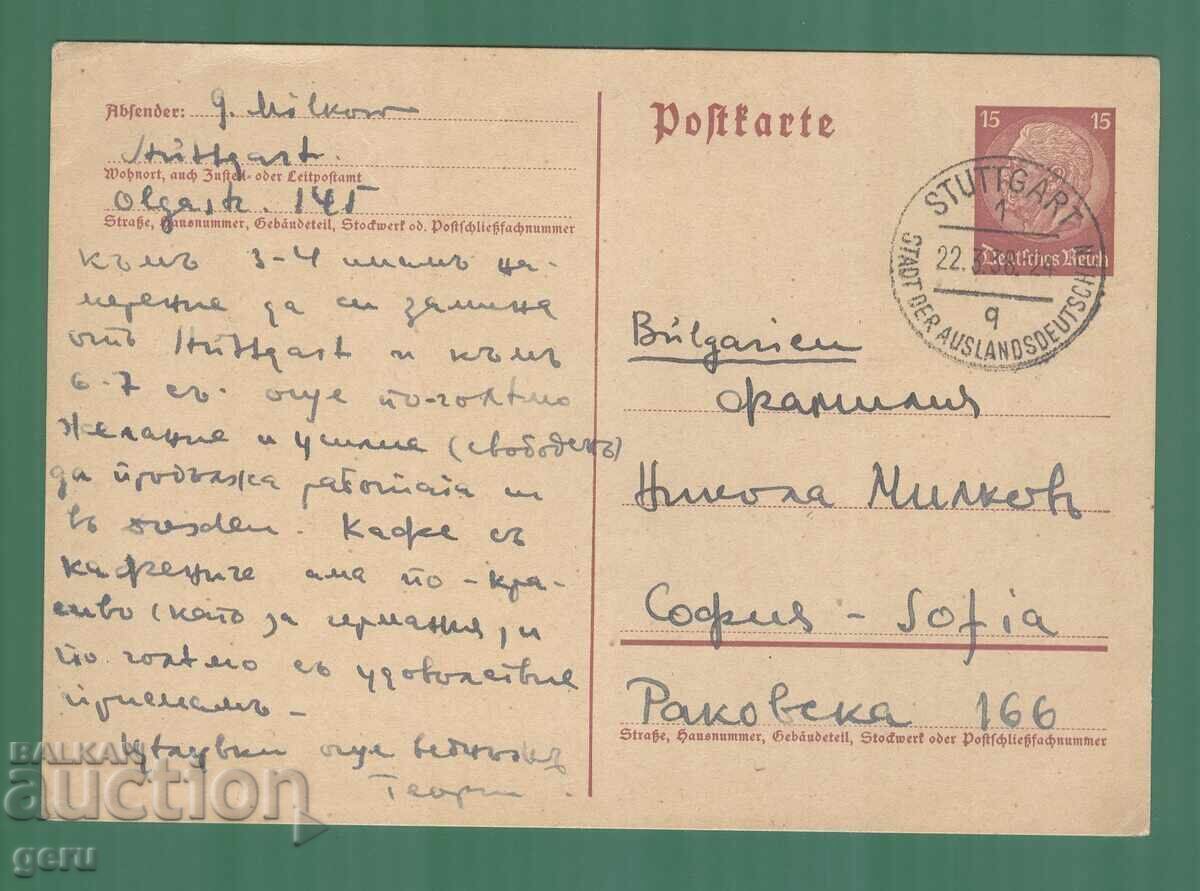 Absender: G. Milkow
Stuttgart.
Wohnort, auch Zustell- oder Leitpostamt
Olgastr. 145
Straße, Hausnummer, Gebäudeteil, Stockwerk od. Postschließfachnummer
към 3-4 на-
мерение да си замина
отъ Stuttgart и към
6-7 съ още по-голѣмо
желание и усилие (свободенъ)
да продължа работата си
въ Dresden. Кафе съ
има по-кра-
сиво (като за германия) и
по голѣмо съ удоволствие
приемамъ -
Цѣлувки още веднъжъ
Георги.
Postkarte
15 15
Deutsches Reich
STUTTGART
1
22.3.38. 21
q
STADT DER AUSLANDSDEUTSCHEN
Bulgarien
Фамилия
Никола Милковъ
София - Sofia
Раковска 166
Straße, Hausnummer, Gebäudeteil, Stockwerk oder Postschließfachnummer
BALKAN
auction
geru